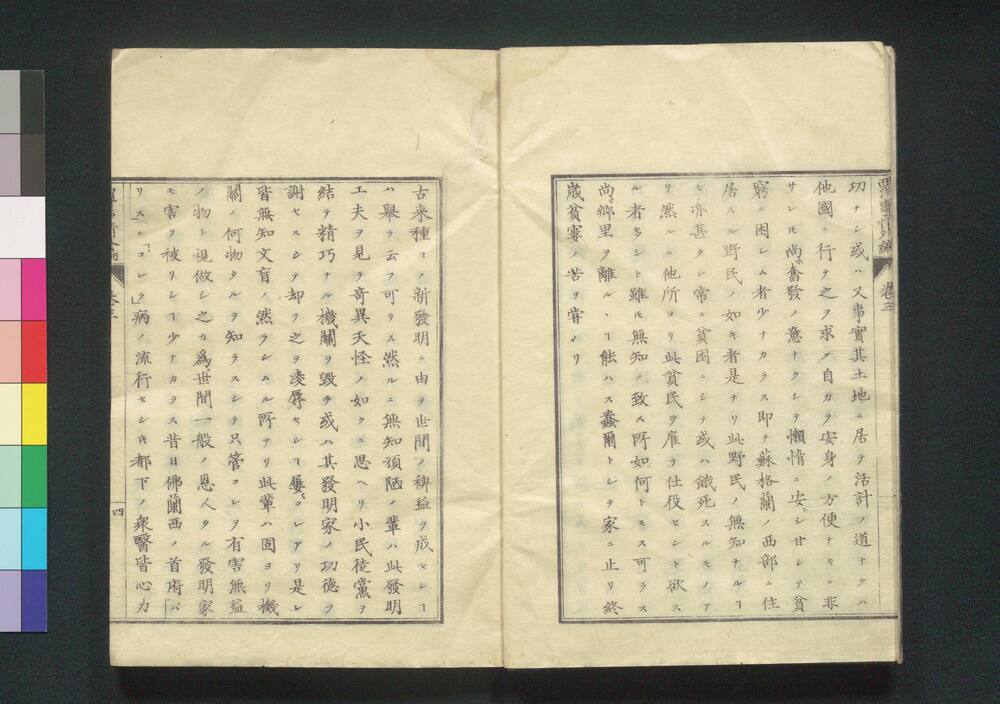 西洋事情外編 卷三
功ナシ或ハ又事實其土地ニ居テ活計ノ道ナクハ
他國ニ行テ之ヲ求メ自カラ安身ノ方便ナキニ非
サレ𪜈尚ホ奮發ノ意ナクシテ懶惰ニ安ンシ甘シテ貧
窮ニ困シム者少ナカラス即チ蘇格蘭ノ西部ニ住
居スル野民ノ如キ者是ナリ此野民ノ無知ナルヿ
亦甚タシ常ニ貧困ニシテ或ハ餓死スルモノア
リ然ルニ他所ヨリ此貧民ヲ雇テ仕役セント欲ス
ル者多シト雖𪜈無知ノ致ス所如何トモス可ラス
尚ホ鄉里ヲ離ルヽヿ能ハス蠢爾トシテ家ニ止リ終
歲貧窶ノ苦ヲ甞メリ
古来種々ノ新發明ニ由テ世間ノ裨益ヲ成セシヿ
ハ舉テ云フ可ラス然ルニ無知頑陋ノ輩ハ此發明
工夫ヲ見テ奇異夭怪ノ如クニ思ヘリ小民徒黨ヲ
結テ精巧ナル機關ヲ毀チ或ハ其發明家ノ功德ヲ
謝セスシテ却テ之ヲ凌辱セシヿ屢〻コレアリ是レ
皆無知文盲ノ然ラシムル所ナリ此輩ハ固ヨリ機
關ノ何物タルヲ知ラスシテ只管コレヲ有害無益
ノ物ト視做シ之カ爲メ世間一般ノ恩人タル發明家
モ害ヲ被リシヿ少ナカラス昔日佛蘭西ノ首府「パ
リス」ニ「コレラ」病ノ流行セシ𪜈都下ノ衆醫皆心力
卷三
四